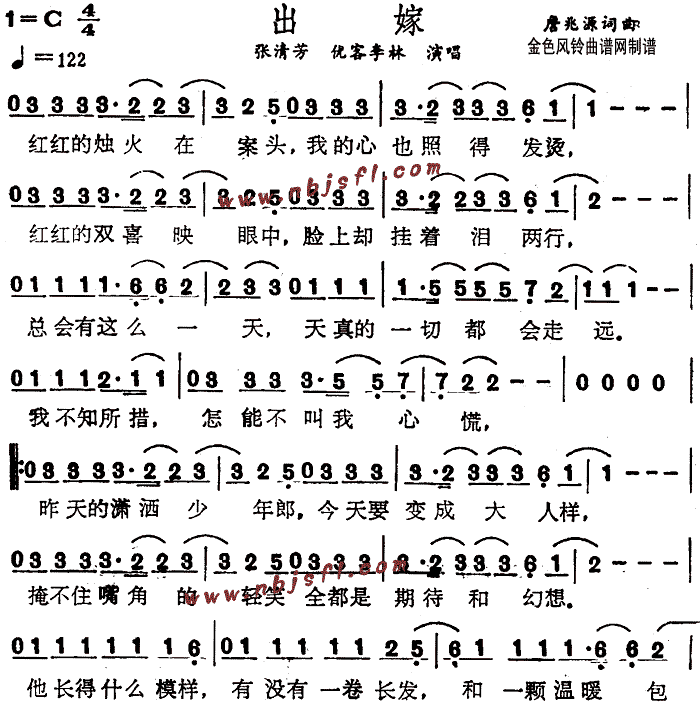 1=C 4/4 出嫁 詹兆源词曲
♩=122 张清芳 优客李林 演唱 金色风铃曲谱网制谱
03 33 3·2 2 3 | 3 2 5 03 33 | 3·2 33 3 6 1 | 1 - - -
红红的烛火 在 案头,我的心也照 得 发烫,
www.nbjsfl.com
03 33 3·2 2 3 | 3 2 5 03 33 | 3·2 2 33 6 1 | 2 - - -
红红的双喜 映 眼中,脸上却挂着 泪 两行,
01 11 1·6 6 2 | 2 3 3 01 11 | 1·5 55 5 7 2 | 1 1 1 - -
总会有这么 一 天,天真的一切都 会走 远。
01 11 2·1 1 | 03 33 3·5 5 7 | 7 2 2 - - | 0 0 0 0
我不知所措, 怎能不叫我 心 慌,
‖:03 33 3·2 2 3 | 3 2 5 03 33 | 3·2 33 3 6 1 | 1 - - -
昨天的潇洒 少 年郎,今天要变成 大 人样,
03 33 3·2 2 3 | 3 2 5 03 33 | 3·2 33 3 6 1 | 2 - - -
掩不住嘴角 的 轻笑 全都是期待和 幻想。
www.nbjsfl.com
01 11 11 1 6 | 01 11 11 2 5 | 6 1 11 1·6 6 2
他长得什么模样, 有没有一卷长发, 和 一颗温暖 包